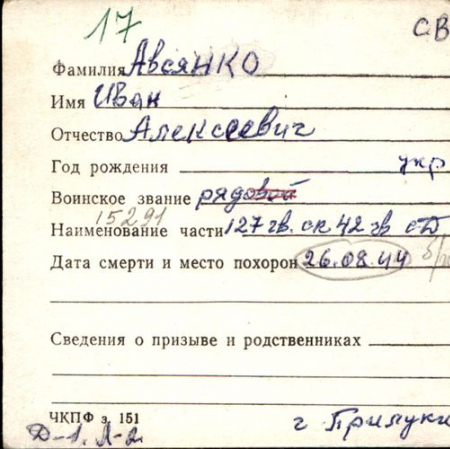 17 СВ
Фамилия Авсянко
Имя Иван
Отчество Алексеевич
Год рождения укр
Воинское звание рядовой
15291
Наименование части 127 гв. ск 42 гв сД
Дата смерти и место похорон 26.08.44
Сведения о призыве и родственниках
ЧКПФ з. 151
Д-1. Л-2 г Прилуки